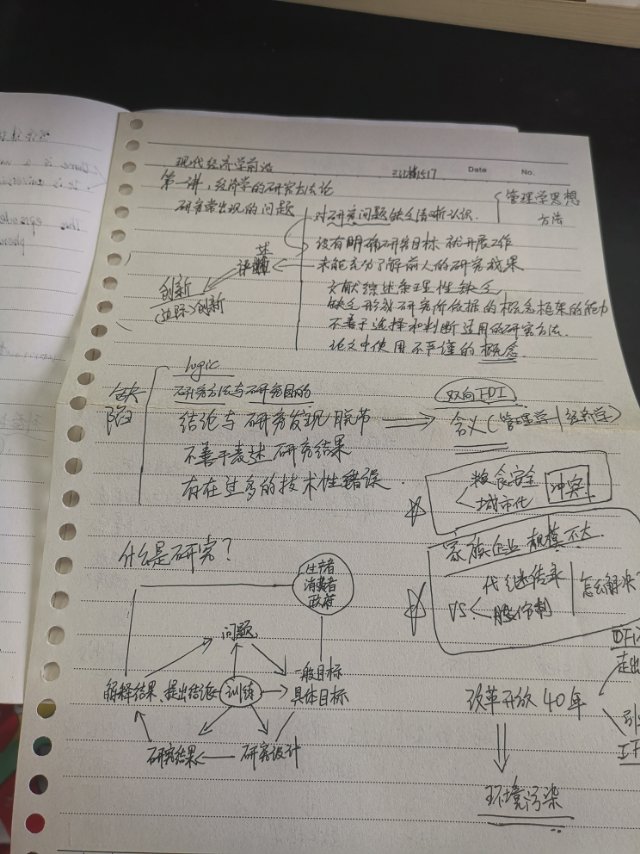 现代经济学前沿
Date
No.
第一讲：经济学的研究方法论
研究常出现的问题
对研究问题缺乏清晰认识.
管理学思想
方法
没有明确研究目标 就开展工作
未能充分了解前人的研究成果
文献综述条理性缺乏
缺乏形成研究所依据的概念框架的能力
不善于选择和判断适用的研究方法.
论文中使用不严谨的概念
创新
(边际)创新
缺陷
logic
研究方法与研究目的
结论与研究发现脱节
不善于表述研究结果
存在过多的技术性错误.
双向FDI
含义(管理学|经济学)
粮食安全
城市化
冲突!
家族企业 规模不大
代继传承
VS
股份制
怎么解决?
什么是研究?
生产者
消费者
政府
问题
一般目标
具体目标
解释结果、提出结论
训练
研究结果
研究设计
改革开放40年
环境污染
走出
引